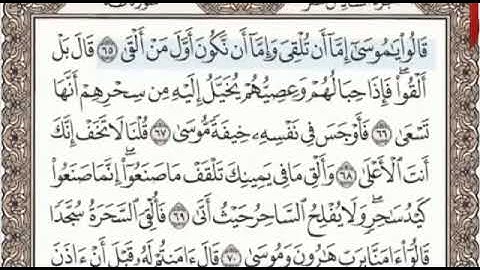 قَالُوا۟ يَٰمُوسَىٰٓ إِمَّآ أَن تُلْقِىَ وَإِمَّآ أَن نَّكُونَ أَوَّلَ مَنْ أَلْقَىٰ ٦٥ قَالَ بَلْ
أَلْقُوا۟ فَإِذَا حِبَالُهُمْ وَعِصِيُّهُمْ يُخَيَّلُ إِلَيْهِ مِن سِحْرِهِمْ أَنَّهَا
تَسْعَىٰ ٦٦ فَأَوْجَسَ فِى نَفْسِهِۦ خِيفَةً مُّوسَىٰ ٦٧ قُلْنَا لَا تَخَفْ إِنَّكَ
أَنتَ ٱلْأَعْلَىٰ ٦٨ وَأَلْقِ مَا فِى يَمِينِكَ تَلْقَفْ مَا صَنَعُوٓا۟ إِنَّمَا صَنَعُوا۟
كَيْدُ سَٰحِرٍ وَلَا يُفْلِحُ ٱلسَّاحِرُ حَيْثُ أَتَىٰ ٦٩ فَأُلْقِىَ ٱلسَّحَرَةُ سُجَّدًا
قَالُوٓا۟ ءَامَنَّا بِرَبِّ هَٰرُونَ وَمُوسَىٰ ٧٠ قَالَ ءَامَنتُمْ لَهُۥ قَبْلَ أَنْ ءَاذَنَ